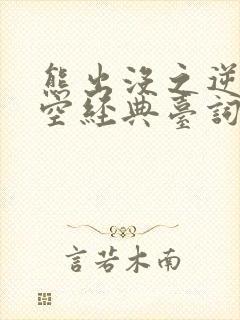 熊出没之逆
空經典臺詞
言若木南